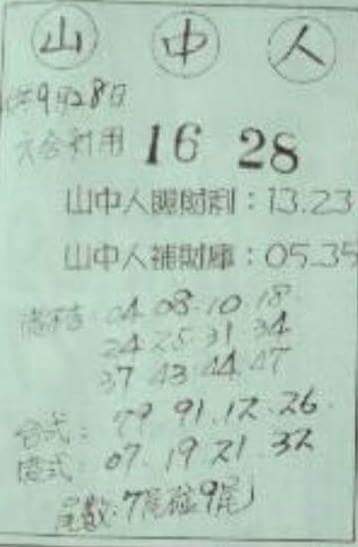 山 中 人
年9月28日
六合社用 16 28
山中人賜財利：13.23
山中人補財庫：05.35
04.08.10.18.
24.25.31.34
37.43.44.47
台式：79.91.12.26.
港式：07.19.21.32
尾數：7尾碰9尾